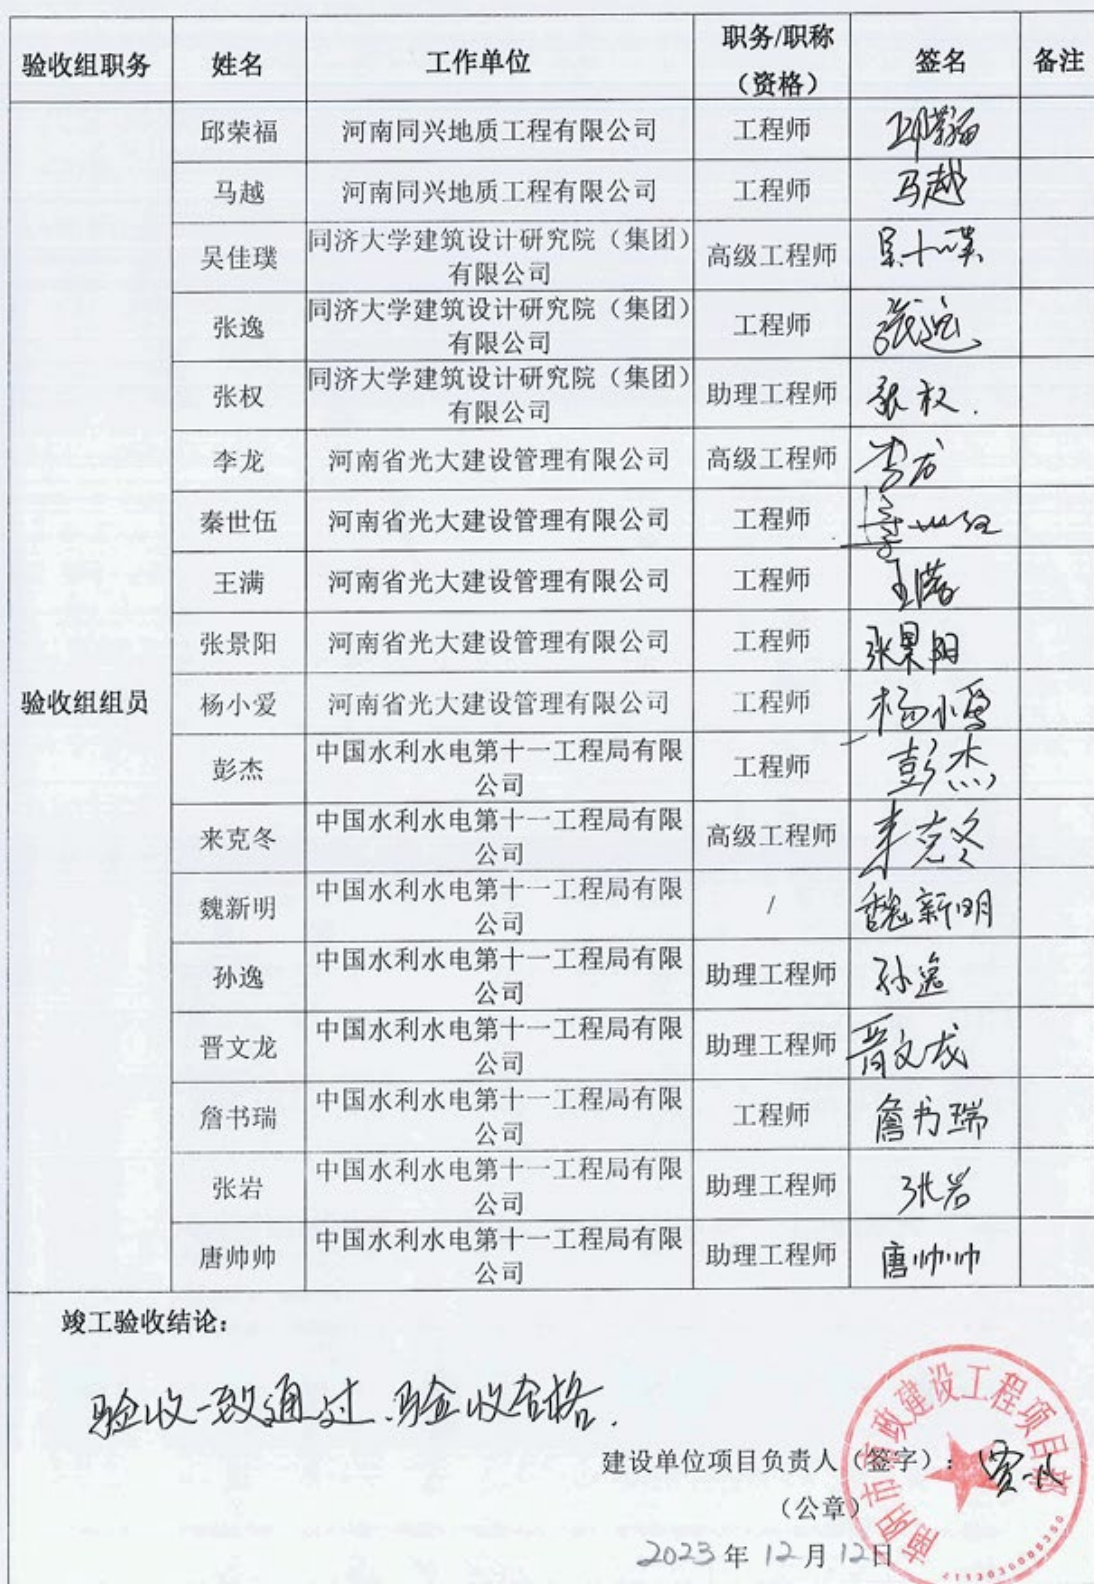 验收组职务 姓名 工作单位 职务/职称 签名 备注
（资格）
验收组组员
邱荣福 河南同兴地质工程有限公司 工程师 邱荣福
马越 河南同兴地质工程有限公司 工程师 马越
吴佳璞 同济大学建筑设计研究院（集团） 高级工程师
有限公司
张逸 同济大学建筑设计研究院（集团） 工程师 张逸
有限公司
张权 同济大学建筑设计研究院（集团） 助理工程师 张权.
有限公司
李龙 河南省光大建设管理有限公司 高级工程师 李龙
秦世伍 河南省光大建设管理有限公司 工程师
王满 河南省光大建设管理有限公司 工程师 王满
张景阳 河南省光大建设管理有限公司 工程师 张景阳
杨小爱 河南省光大建设管理有限公司 工程师 杨小爱
彭杰 中国水利水电第十一工程局有限 工程师 彭杰
公司
来克冬 中国水利水电第十一工程局有限 高级工程师 来克冬
公司
魏新明 中国水利水电第十一工程局有限 / 魏新明
公司
孙逸 中国水利水电第十一工程局有限 助理工程师 孙逸
公司
晋文龙 中国水利水电第十一工程局有限 助理工程师 晋文龙
公司
詹书瑞 中国水利水电第十一工程局有限 工程师 詹书瑞
公司
张岩 中国水利水电第十一工程局有限 助理工程师 张岩
公司
唐帅帅 中国水利水电第十一工程局有限 助理工程师 唐帅帅
公司
竣工验收结论：
验收一致通过.验收合格.
建设单位项目负责人（签字）：
（公章）
2023年12月12日
南阳市市政建设工程项目部